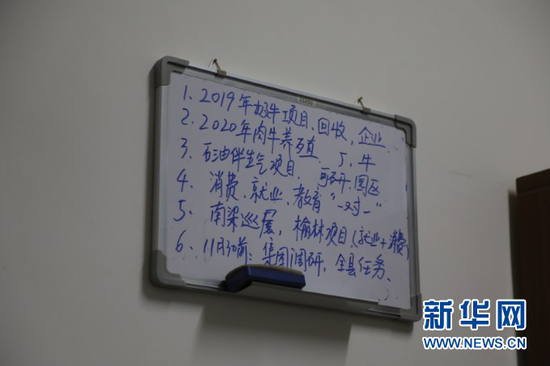 1、2019年奶牛项目、回收,企业
2、2020年肉牛养殖 5、牛
3、石油伴生气项目、可研、园区
4、消费、就业、教育"一对一"
5、南梁巡展,榆林项目(就业+消费)
6、11月30前:集团调研,全县任务、
新华网
WWW.NEWS.CN